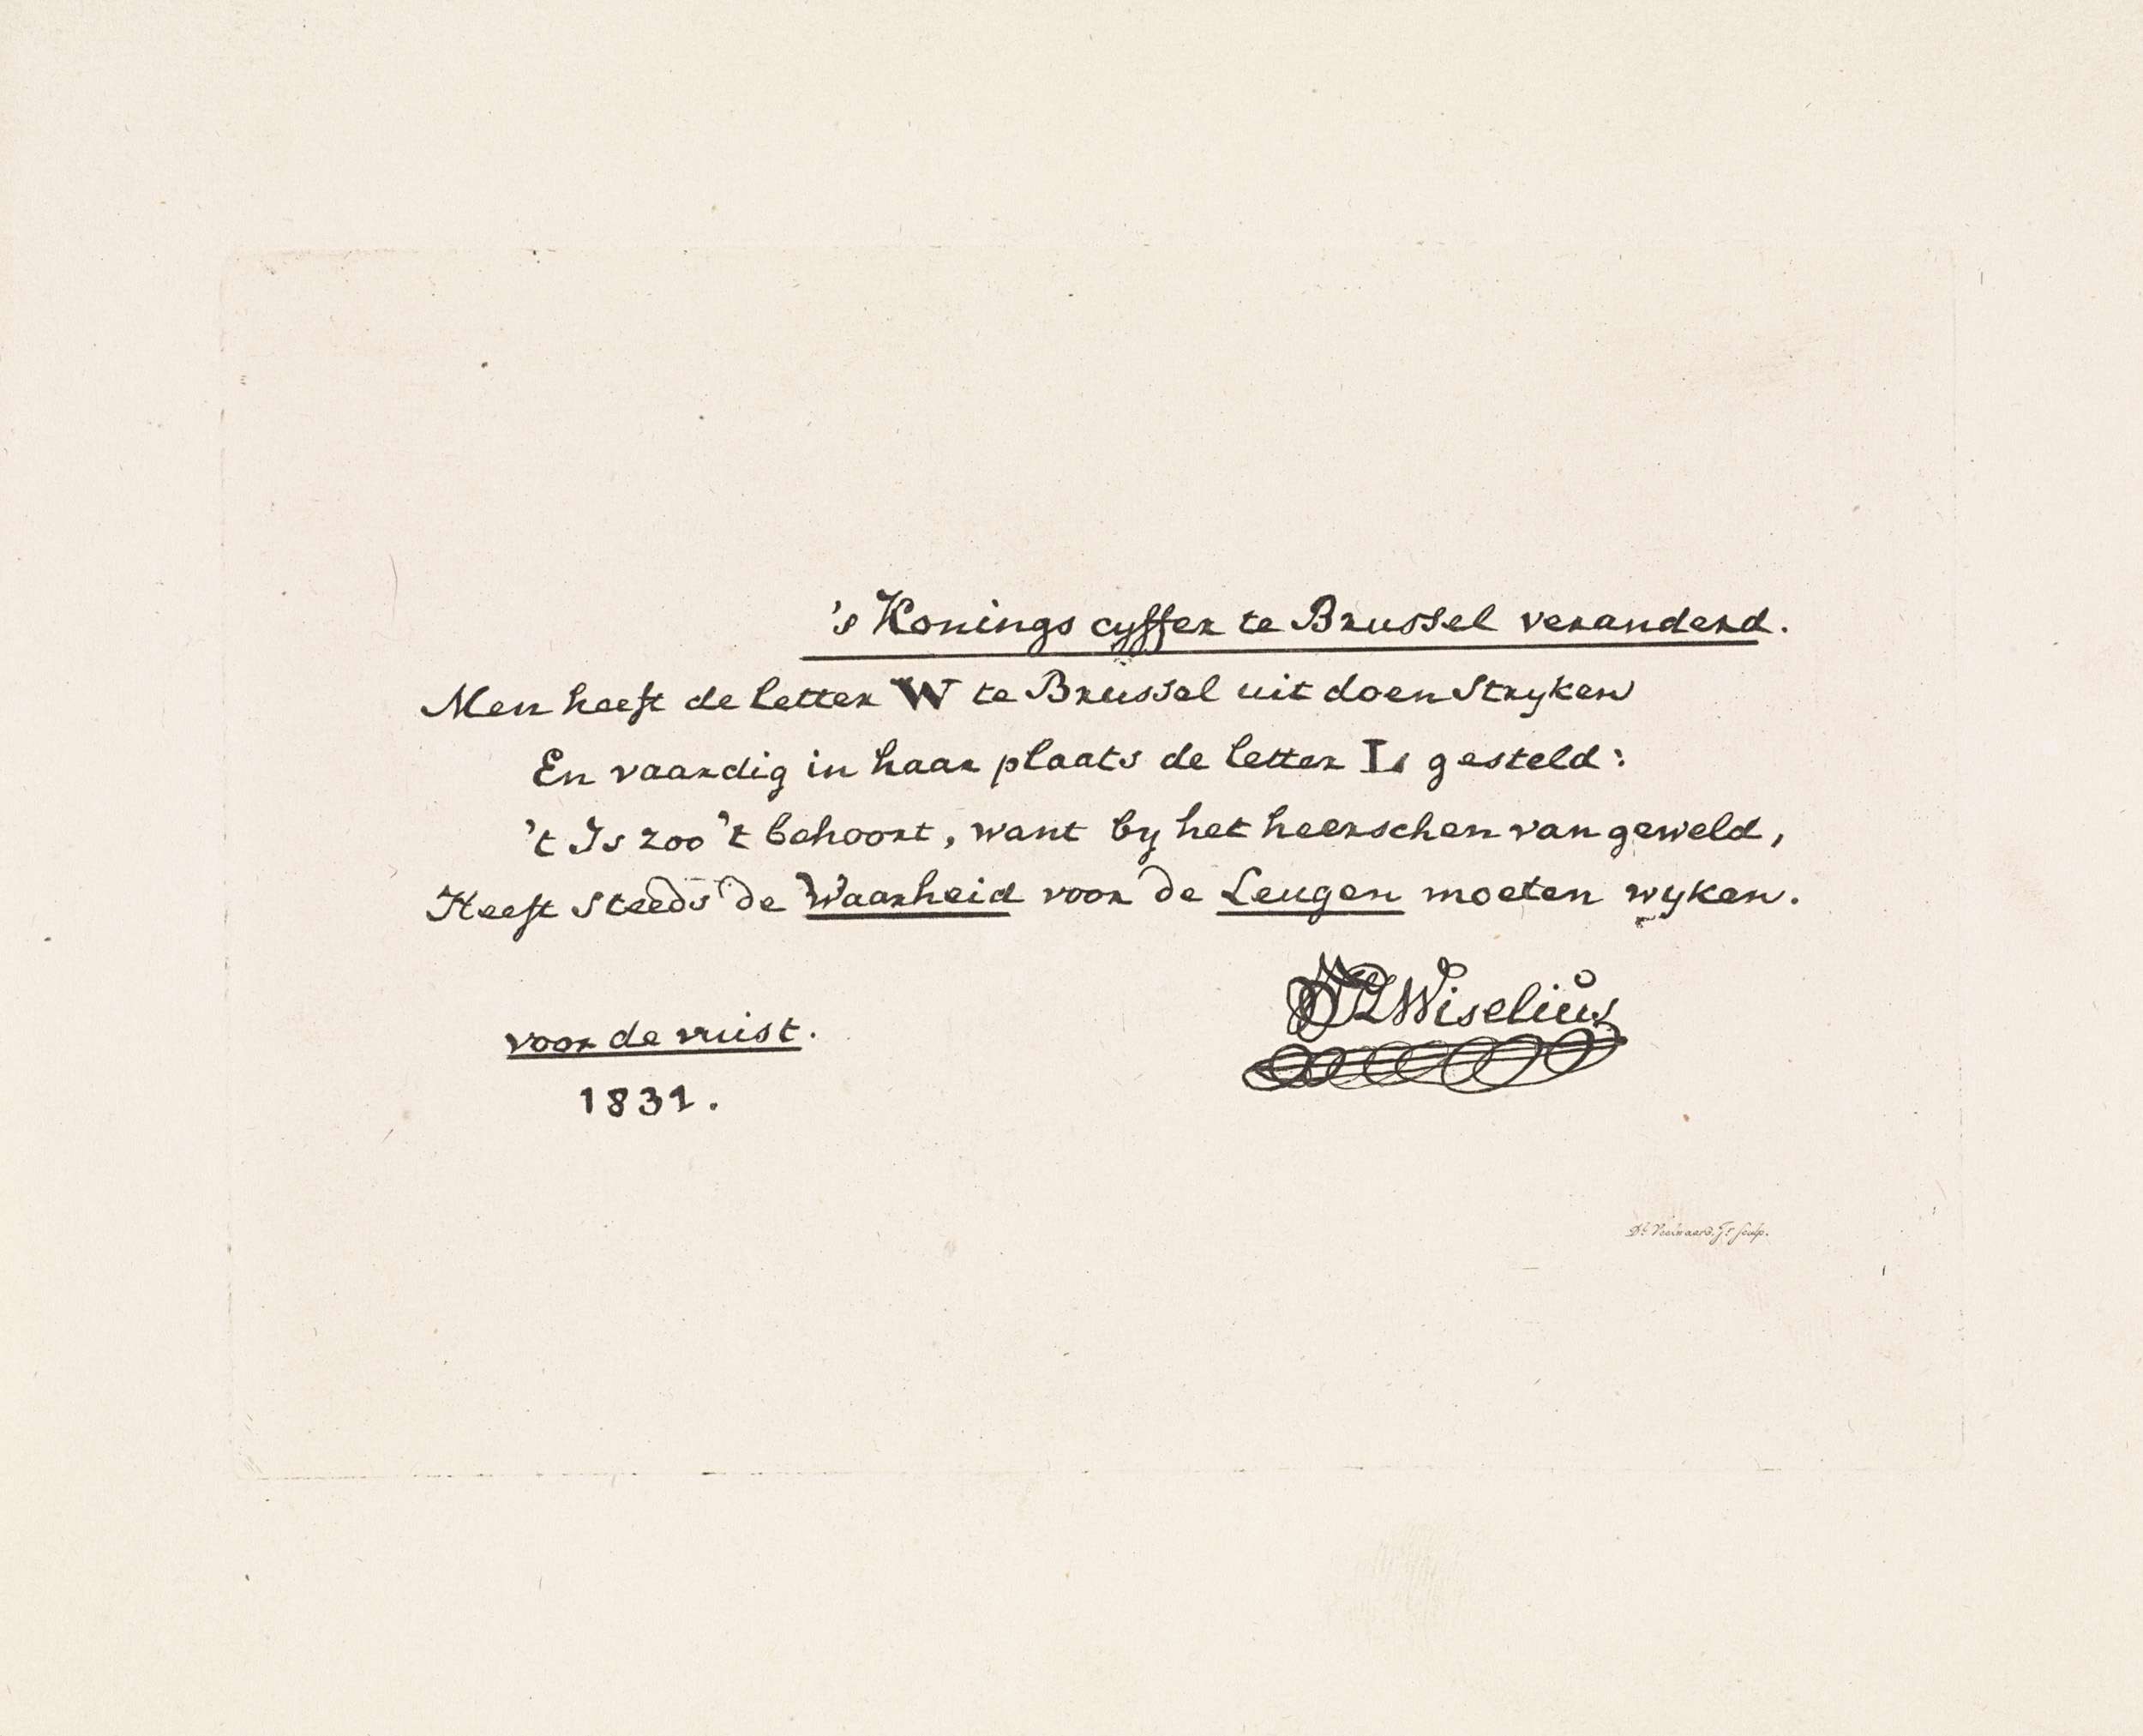 's Konings cyffer te Brussel veranderd.
Men heeft de letter W te Brussel uit doen Stryken
En vaardig in haar plaats de letter L gesteld:
't Is zoo 't behoort, want by het heerschen van geweld,
Heeft Steeds de Waarheid voor de Leugen moeten wyken.
Wiselius
voor de vuist.
1831.
Dk. Veelwaard, Jr. sculp.